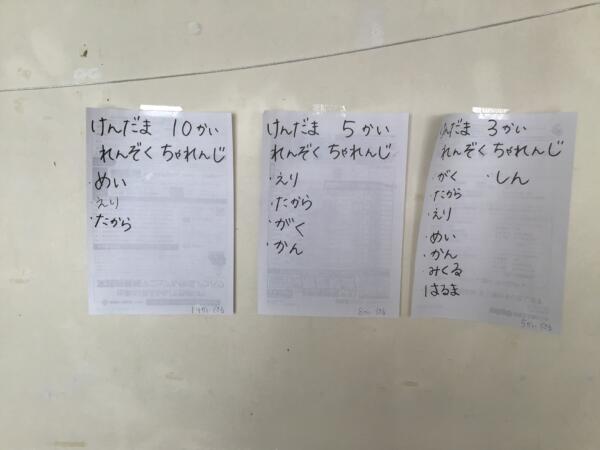 けんだま 10かい
れんぞく ちゃれんじ
・めい
・えり
・たから
けんだま 5かい
れんぞく ちゃれんじ
・えり
・たから
・がく
・かん
けんだま 3かい
れんぞく ちゃれんじ
・がく ・しん
・たから
・えり
・めい
・かん
・みくる
はるま